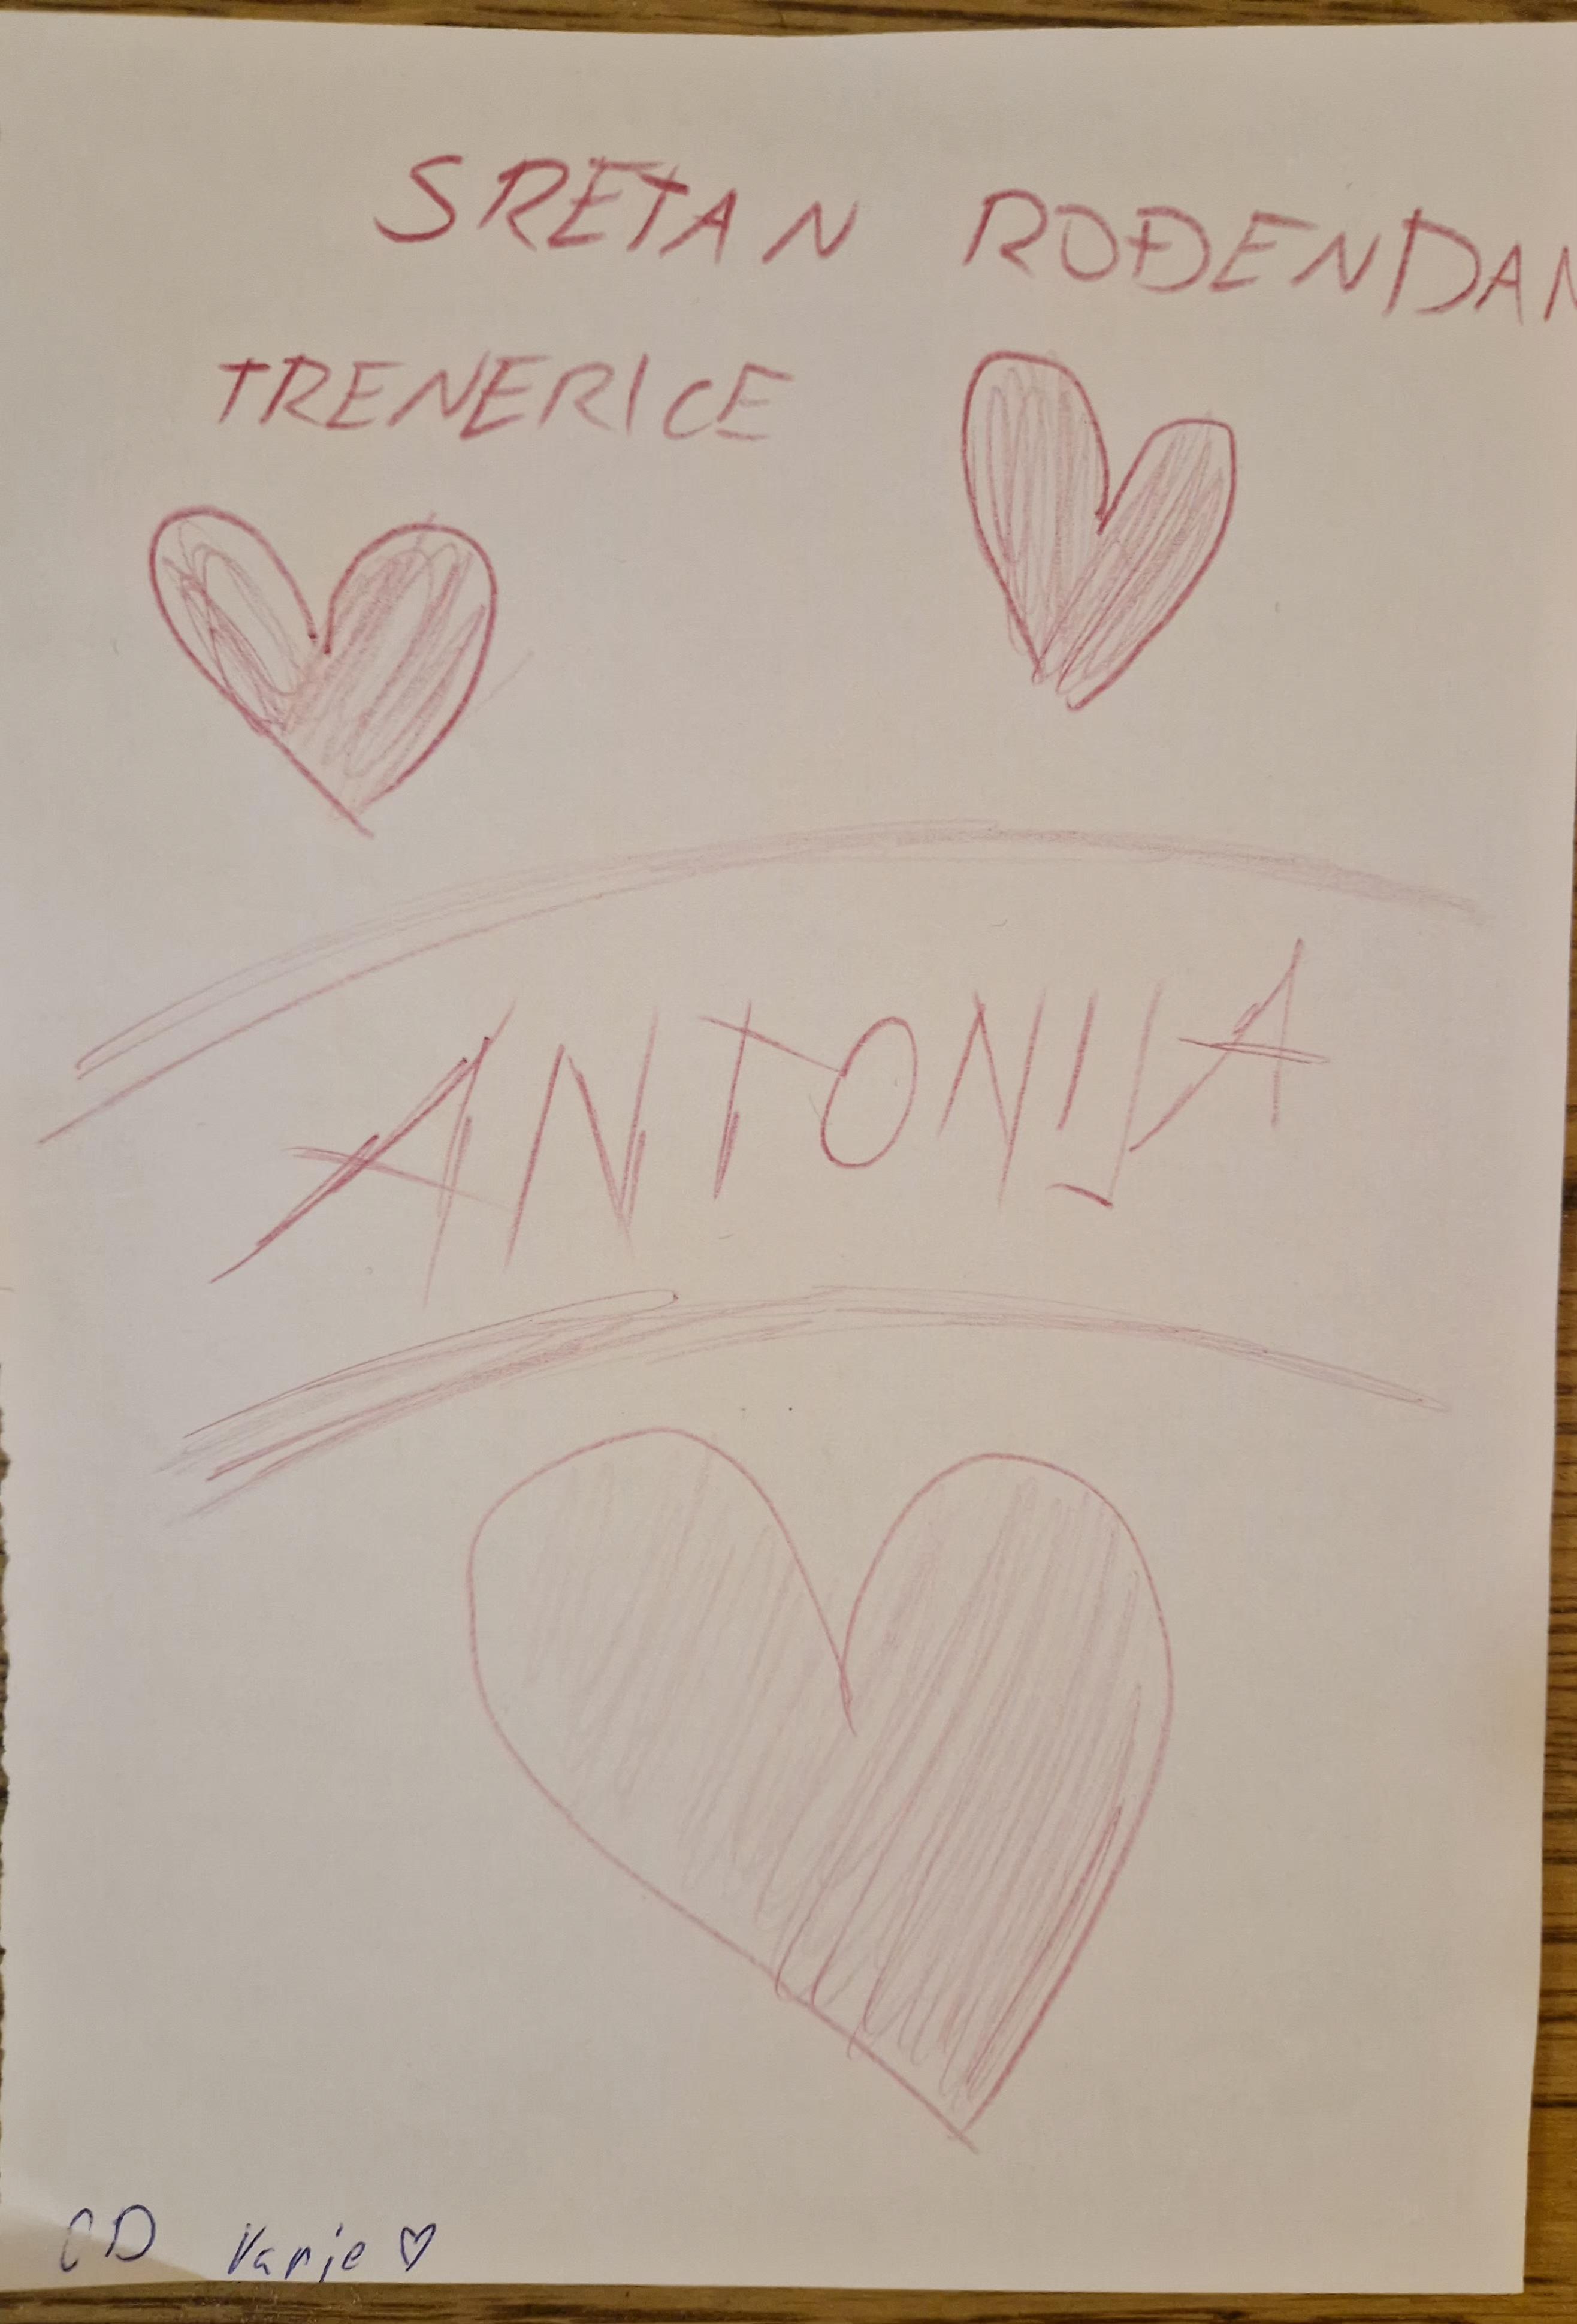 SRETAN ROĐENDAN
TRENERICE
ANTONIJA
OD Vanje ♡